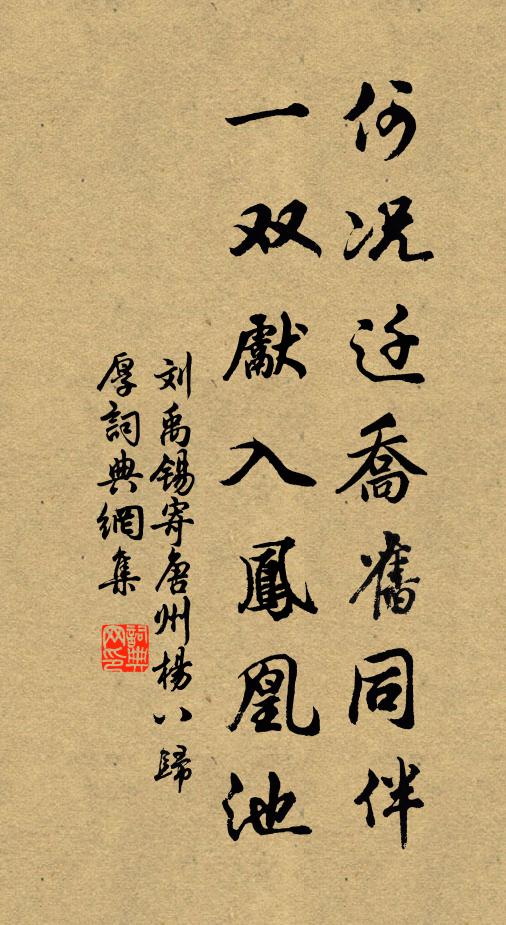 何况迁喬舊同伴
一双獻入鳳凰池
刘禹锡寄唐州楊八歸
厚詞典網集
詞典
网印